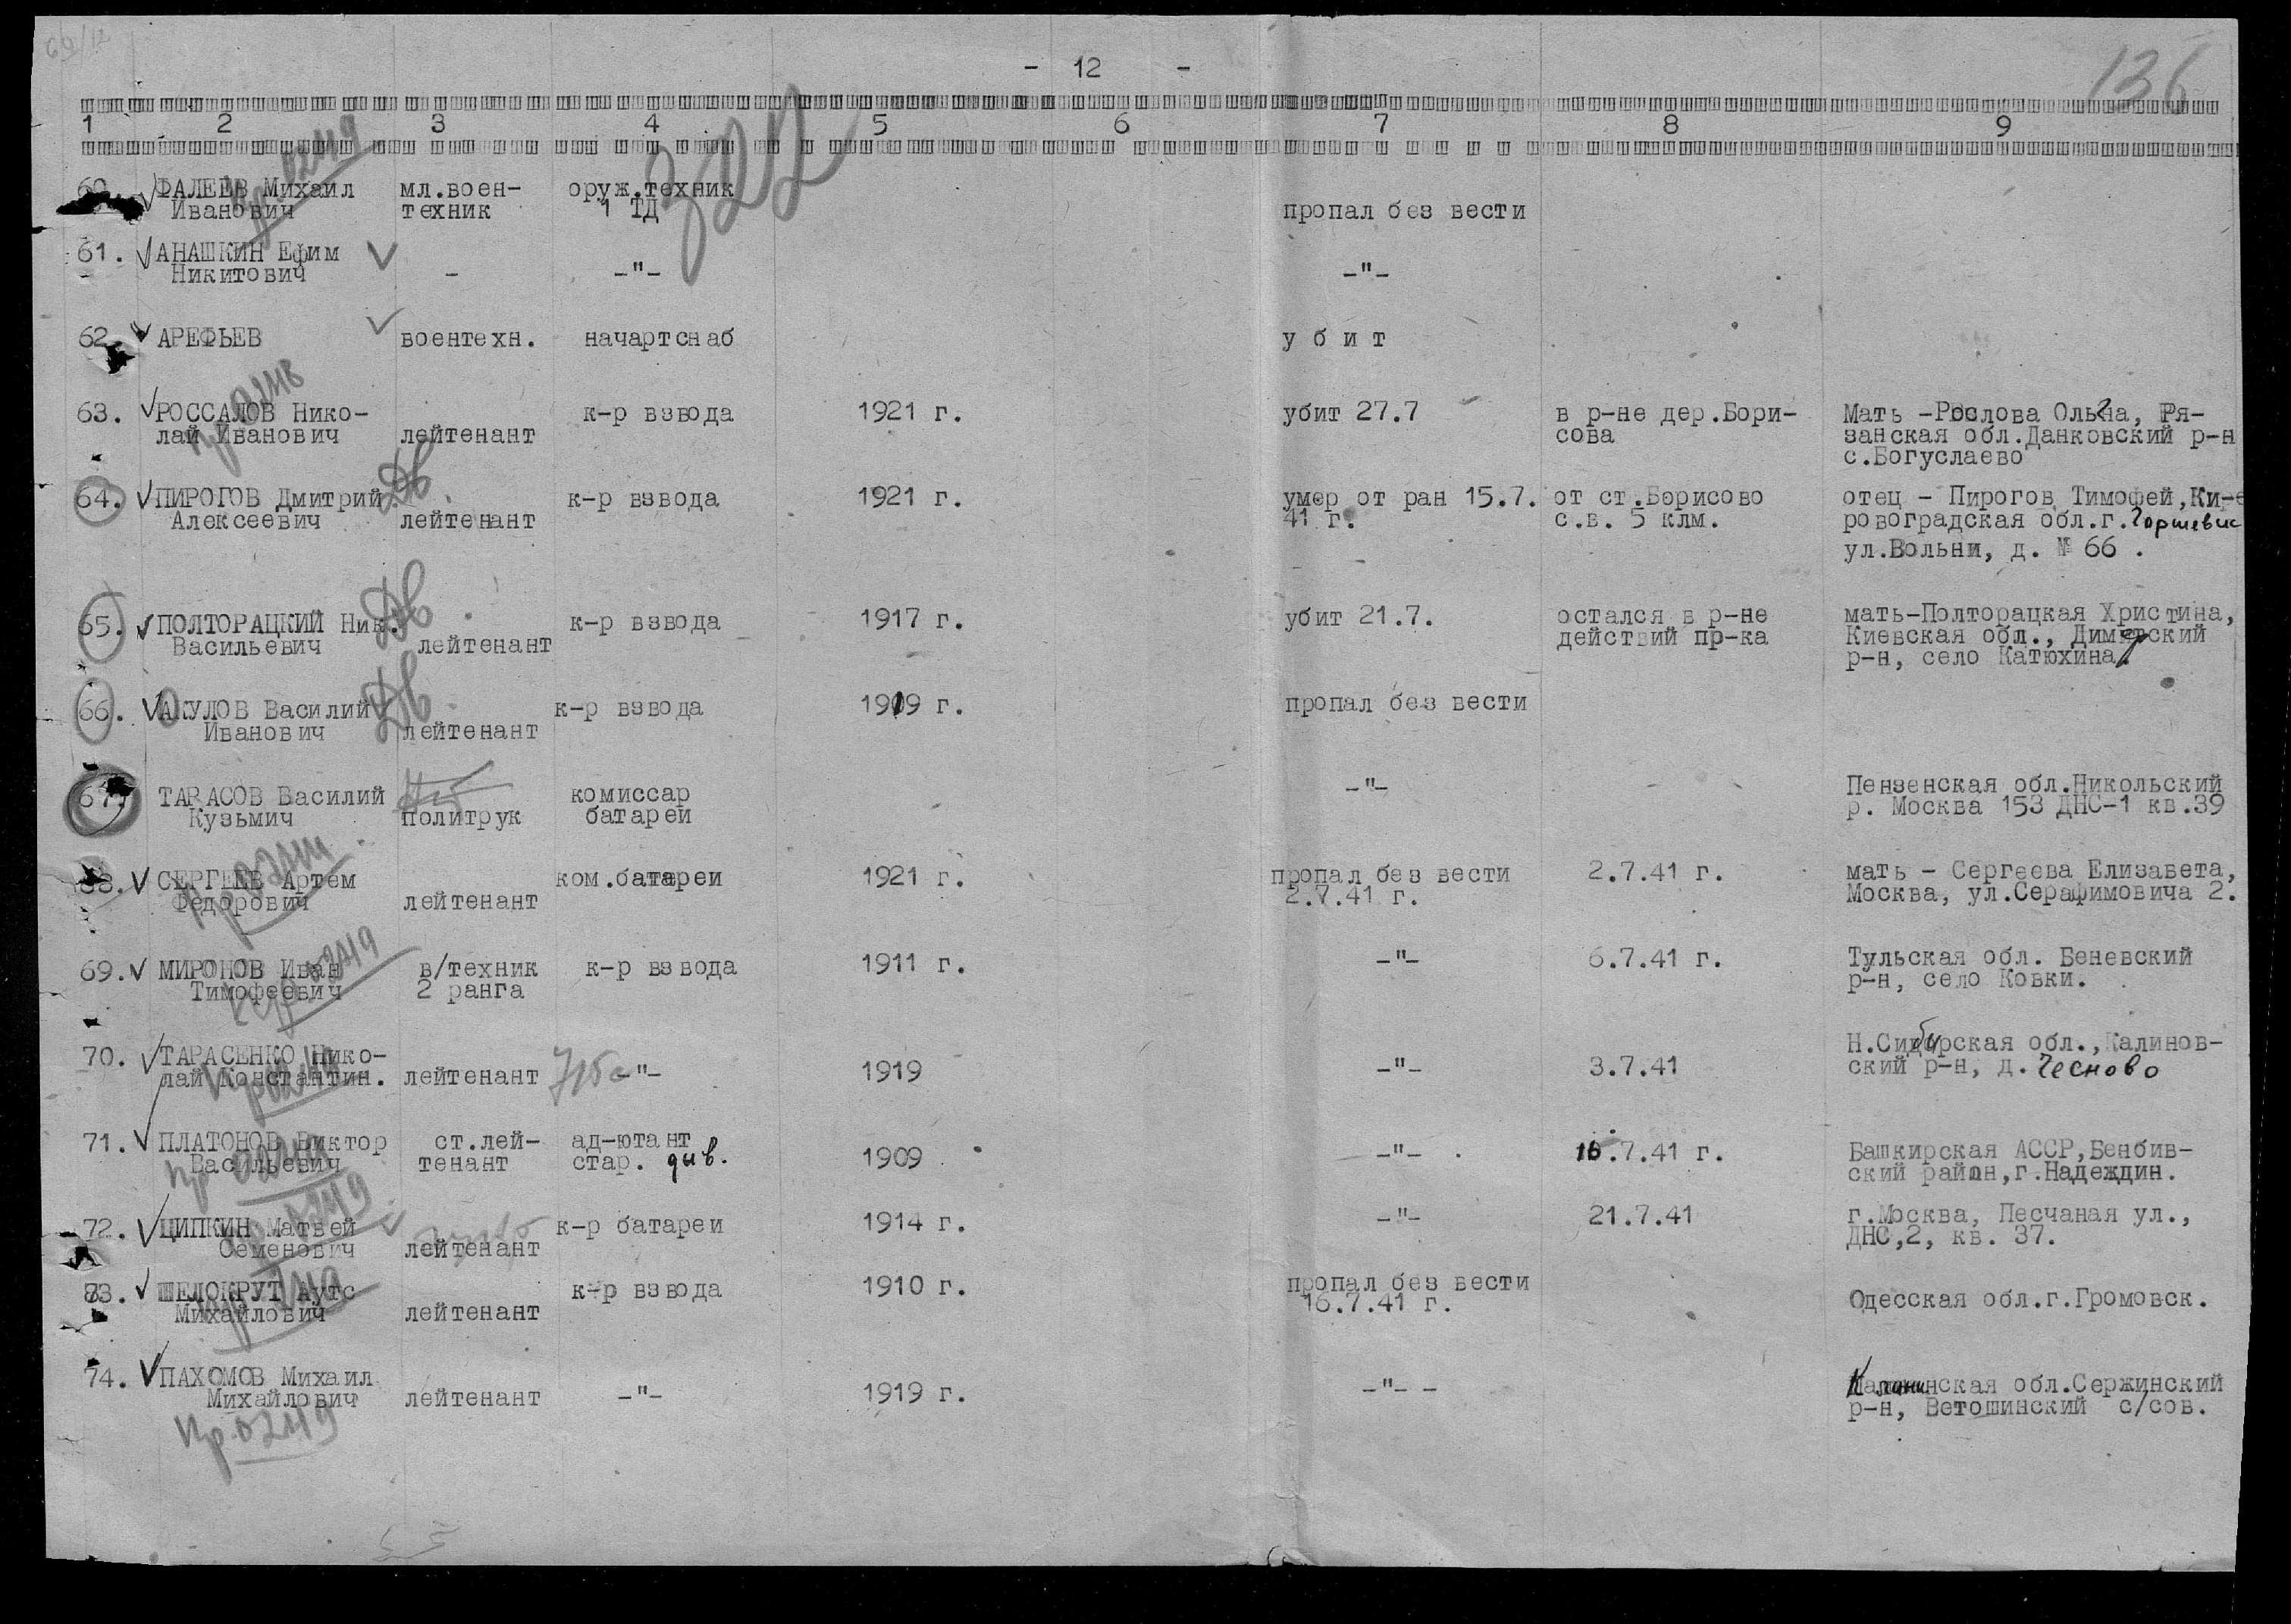 69/12
- 12 -
136
1 2 3 4 5 6 7 8 9
302
пр. 02419
60. ФАЛЕЕВ Михаил мл.воен- оруж.техник
Иванович техник 1 ТД пропал без вести
61. АНАШКИН Ефим
Никитович - -"- -"-
62. АРЕФЬЕВ воентехн. начартснаб у б и т
63. РОССАЛОВ Нико- к-р взвода 1921 г. убит 27.7 в р-не дер.Бори- Мать -Рослова Ольга, Ря-
лай Иванович лейтенант сова занская обл.Данковский р-н
с.Богуслаево
64. ПИРОГОВ Дмитрий к-р взвода 1921 г. умер от ран 15.7. от ст.Борисово отец - Пирогов Тимофей,Ки-
Алексеевич лейтенант 41 г. с.в. 5 клм. ровоградская обл.г.
ул.Вольни, д. № 66 .
65. ПОЛТОРАЦКИЙ Ник. к-р взвода 1917 г. убит 21.7. остался в р-не мать-Полторацкая Христина,
Васильевич лейтенант действий пр-ка Киевская обл., Димерский
р-н, село Катюхина.
66. АКУЛОВ Василий к-р взвода 1919 г. пропал без вести
Иванович лейтенант
67. ТАРАСОВ Василий комиссар -"- Пензенская обл.Никольский
Кузьмич политрук батареи р. Москва 153 ДНС-1 кв.39
68. СЕРГЕЕВ Артем ком.батареи 1921 г. пропал без вести 2.7.41 г. мать - Сергеева Елизавета,
Федорович лейтенант 2.7.41 г. Москва, ул.Серафимовича 2.
пр. 02419
69. МИРОНОВ Иван в/техник к-р взвода 1911 г. -"- 6.7.41 г. Тульская обл. Беневский
Тимофеевич 2 ранга р-н, село Ковки.
70. ТАРАСЕНКО Нико- Н.Сибирская обл.,Калинов-
лай Константин. лейтенант -"- 1919 -"- 3.7.41 ский р-н, д. Чесново
71. ПЛАТОНОВ Виктор ст.лей- ад-ютант -"- 16.7.41 г. Башкирская АССР,Бенбив-
Васильевич тенант стар. див. 1909 ский район,г.Надеждин.
72. ЦИПКИН Матвей к-р батареи 1914 г. -"- 21.7.41 г.Москва, Песчаная ул.,
Семенович лейтенант ДНС,2, кв. 37.
73. ШЕЛОКРУТ Аутс к-р взвода 1910 г. пропал без вести
Михайлович лейтенант 16.7.41 г. Одесская обл.г.Громовск.
74. ПАХОМОВ Михаил Калининская обл.Сержинский
Михайлович лейтенант -"- 1919 г. -"- - р-н, Ветошинский с/сов.
пр. 02419